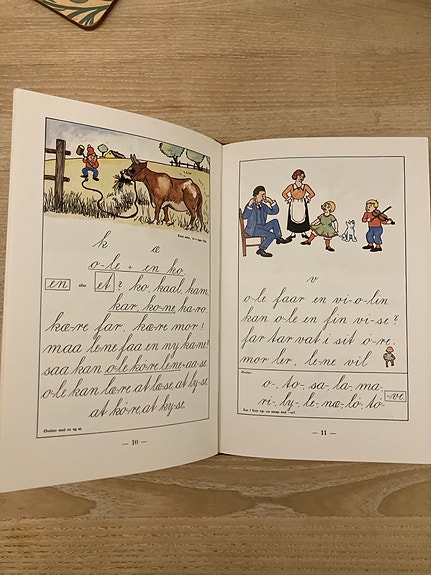 k æ
o-le + en ko
en eller et ? ko, kaal, kam
kar, ko-ne, ka-ro.
kæ-re far, kæ-re mor!
maa le-ne faa en ny ka-ne?
saa kan o-le kø-re le-ne-aa-se.
o-le kan læ-re at læ-se, at ly-se,
at kø-re, at ky-se.
Øvelser med en og et.
— 10 —
v
o-le faar en vi-o-lin
kan o-le en fin vi-se?
far tar vat i sit ø-re.
mor ler, le-ne vil
Øvelser:
o-, to-, sa-, la-, ma-,
ri-, ly-, le-, næ-, lø-, tø- -ve.
— 11 —